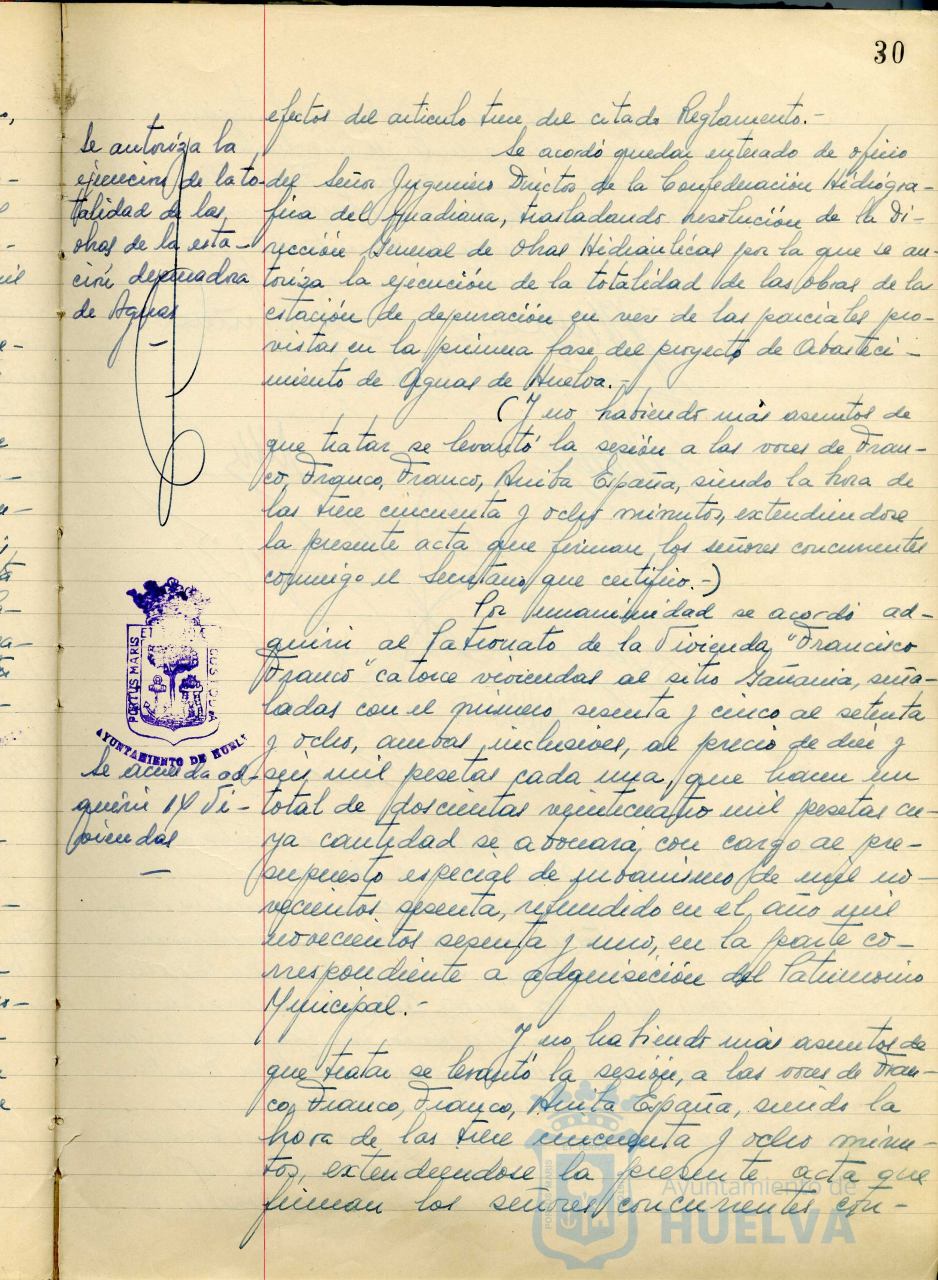 30
efectos del articulo trece del citado Reglamento.-
Se autoriza la
ejecución de la to-
talidad de las
obras de la esta-
ción depuradora
de Aguas
Se acordó quedar enterado de oficio
del Señor Yngeniero Director de la Confederación Hidrógra-
fica del Guadiana, trasladando resolución de la Di-
rección General de Obras Hidraúlicas por la que se au-
toriza la ejecución de la totalidad de las obras de la
estación de depuración en vez de las parciales pro-
vistas en la primera fase del proyecto de Abasteci-
miento de Aguas de Huelva.-
(Y no habiendo más asuntos de
que tratar se levantó la sesión a las voces de Fran-
co, Franco, Franco, Arriba España, siendo la hora de
las trece cincuenta y ocho minutos, extendiendose
la presente acta que firman los señores concurrentes
conmigo el Secretario, que certifico.-)
PORTUS MARIS ET TERRAE CUSTODIA
AYUNTAMIENTO DE HUELVA
Se acuerda ad-
quirir 14 Vi-
viendas
Por unanimidad se acordó ad-
quirir al Patronato de la Vivienda "Francisco
Franco" catorce viviendas al sitio Gañania, seña-
ladas con el número sesenta y cinco al setenta
y ocho, ambas inclusives, al precio de diez y
seis mil pesetas cada una, que hacen un
total de doscientas veinticuatro mil pesetas cu-
ya cantidad se abonará con cargo al pre-
supuesto especial de urbanismo de mil no-
vecientos sesenta, refundido en el año mil
novecientos sesenta y uno, en la parte co-
rrespondiente a adquisición del Patrimonio
Municipal.-
Y no habiendo más asuntos de
que tratar se levantó la sesión, a las voces de Fran-
co, Franco, Franco, Arriba España, siendo la
hora de las trece cincuenta y ocho minu-
tos, extendiendose la presente acta que
firman los señores concurrentes con-
Ayuntamiento de
HUELVA